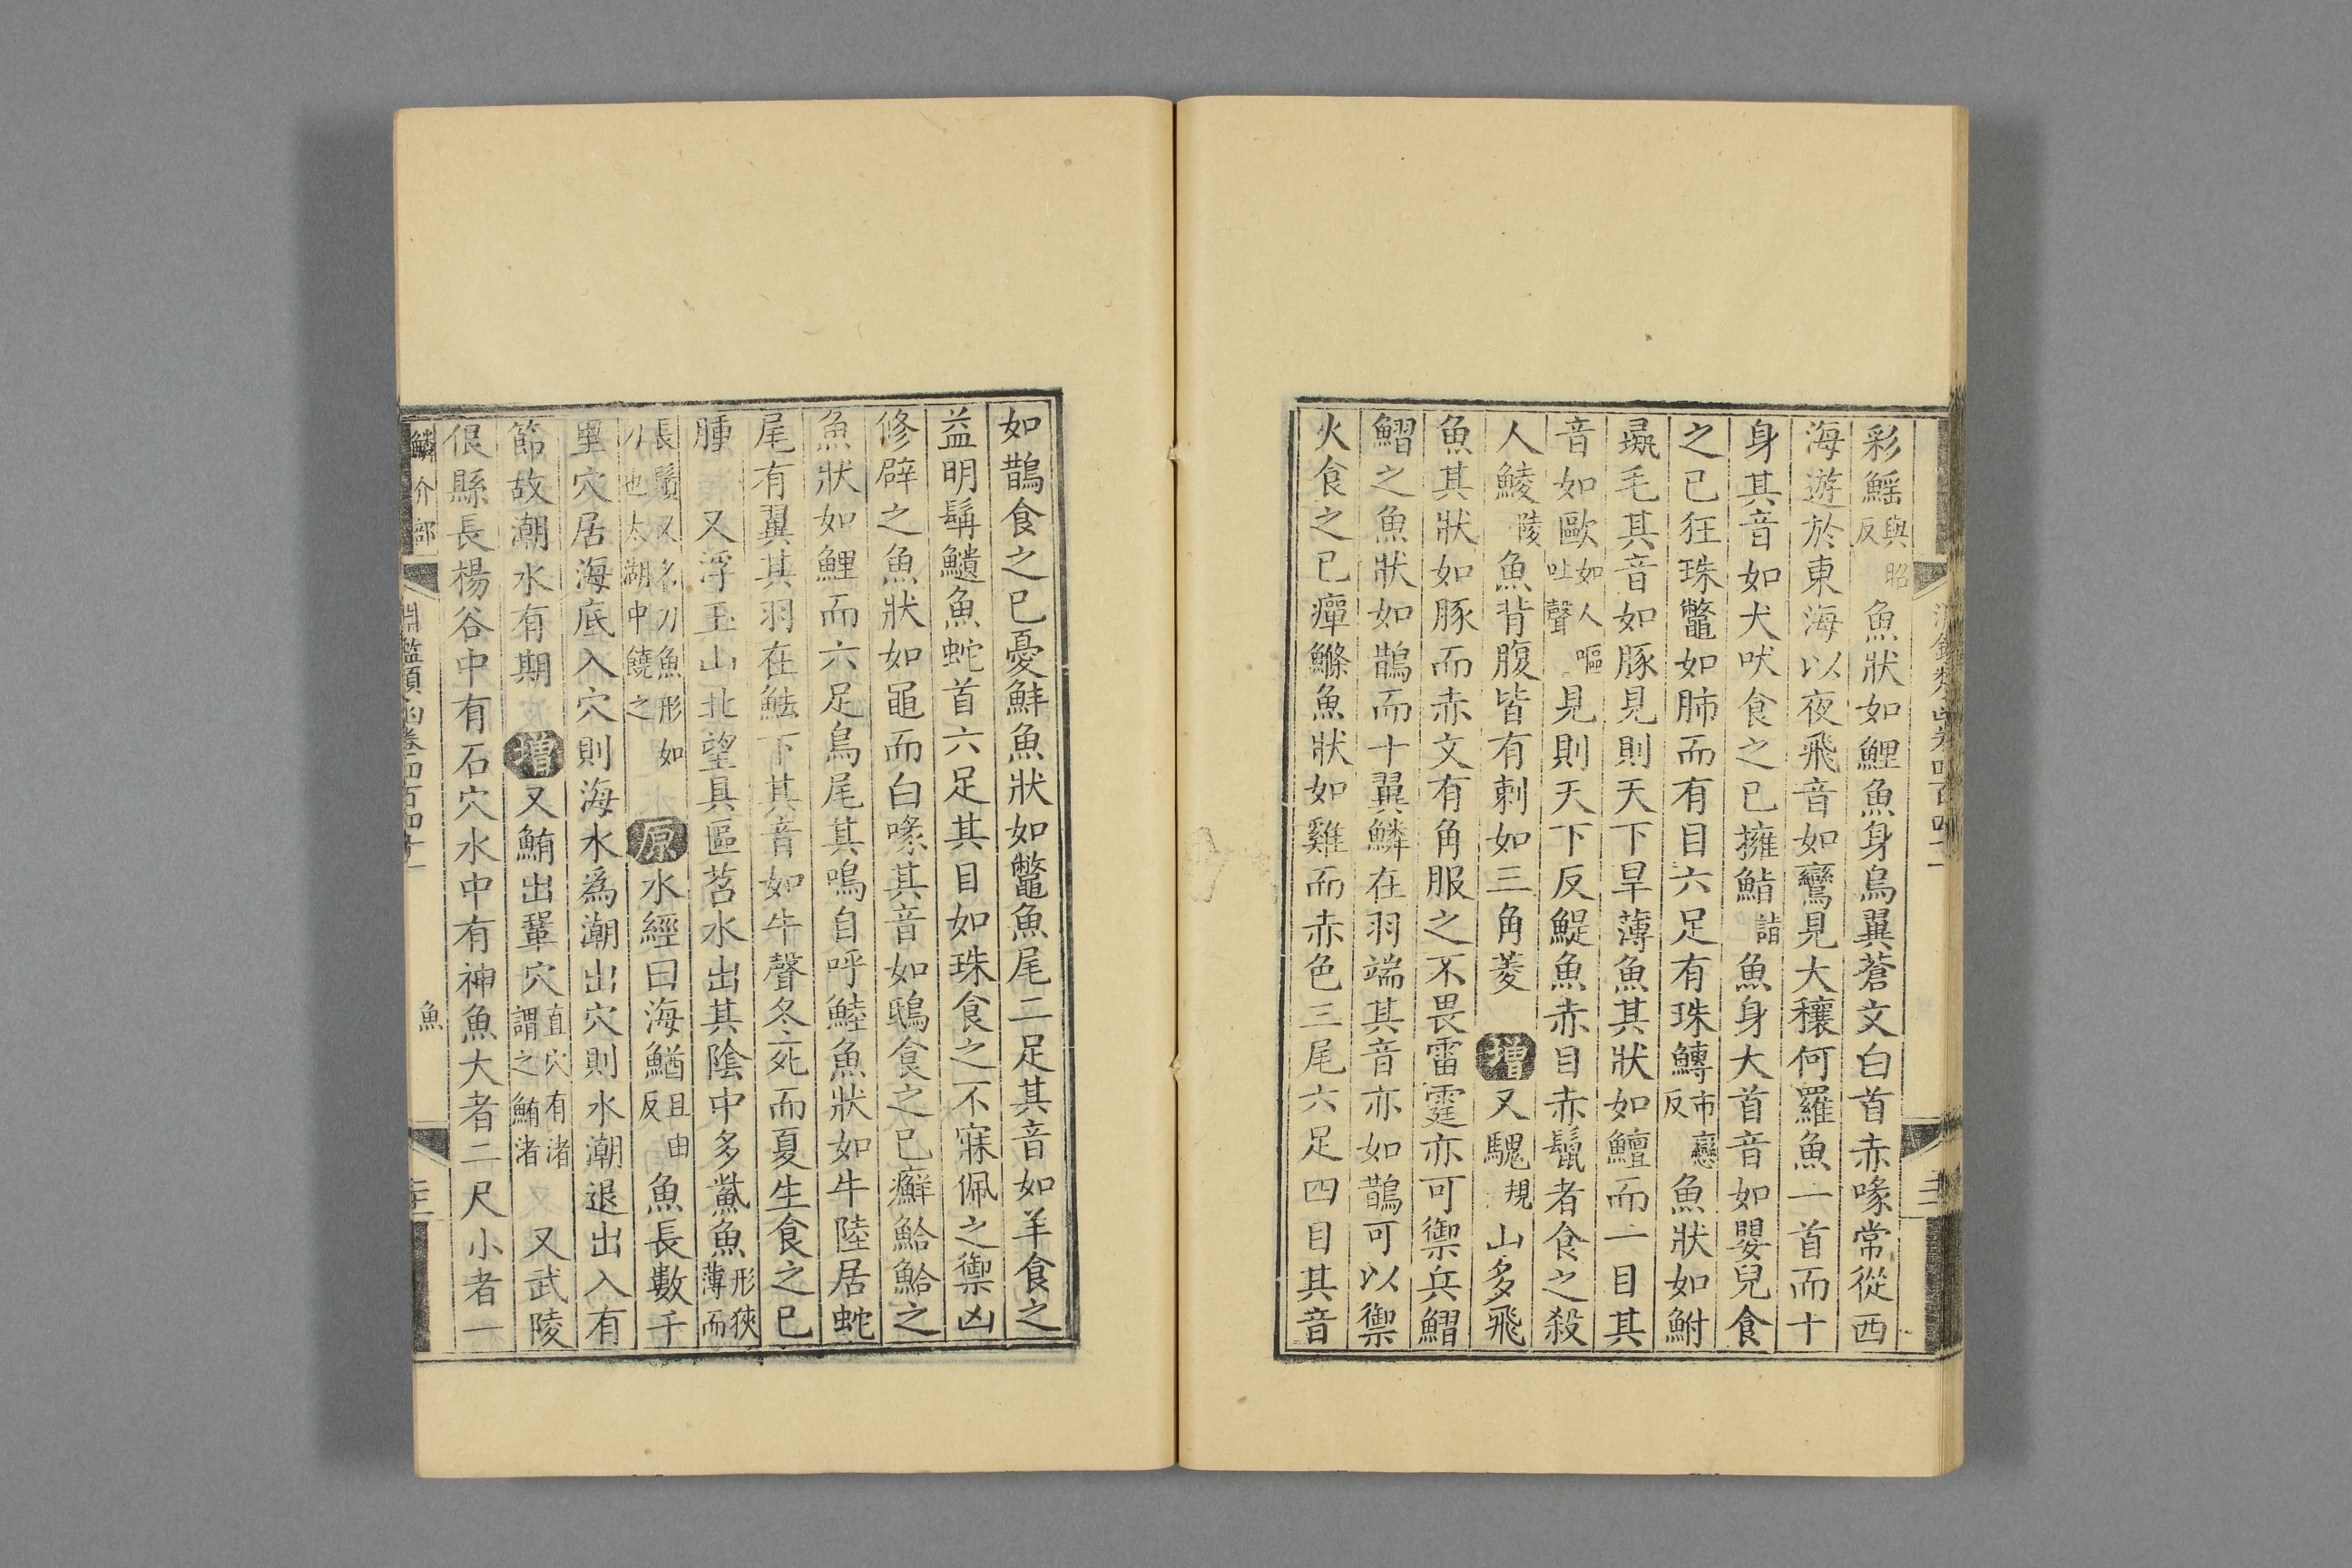 彩鰩與昭反魚狀如鯉魚身鳥翼蒼文白首赤喙常從西
海遊於東海以夜飛音如鸞見大穰何羅魚一首而十
身其音如犬吠食之已擁鮨詣魚身大首音如嬰兒食
之已狂珠鼈如肺而有目六足有珠鱄市戀反魚狀如鮒
彘毛其音如豚見則天下旱薄魚其狀如鱣而一目其
音如歐如人嘔吐聲見則天下反鯷魚赤目赤鬣者食之殺
人鯪陵魚背腹皆有刺如三角菱 增又騩規山多飛
魚其狀如豚而赤文有角服之不畏雷霆亦可禦兵鰼
鰼之魚狀如鵲而十翼鱗在羽端其音亦如鵲可以禦
火食之已癉鰷魚狀如雞而赤色三尾六足四目其音
如鵲食之已憂鮮魚狀如鼈魚尾二足其音如羊食之
益明䰷䱤魚蛇首六足其目如珠食之不寐佩之禦凶
修辟之魚狀如黽而白喙其音如鴟食之已癬鮯鮯之
魚狀如鯉而六足鳥尾其鳴自呼鯥魚狀如牛陸居蛇
尾有翼其羽在魼下其音如牛聲冬死而夏生食之已
腫 又浮玉山北望具區苕水出其陰中多鮆魚形狹薄而
長鬚又名刀魚形如刀也太湖中饒之 原水經曰海鰌且由反魚長數千
里穴居海底入穴則海水為潮出穴則水潮退出入有
節故潮水有期 增又鮪出鞏穴直穴有渚謂之鮪渚 又武陵
佷縣長楊谷中有石穴水中有神魚大者二尺小者一
鱗介部 淵鑑類函卷四百四十一 魚